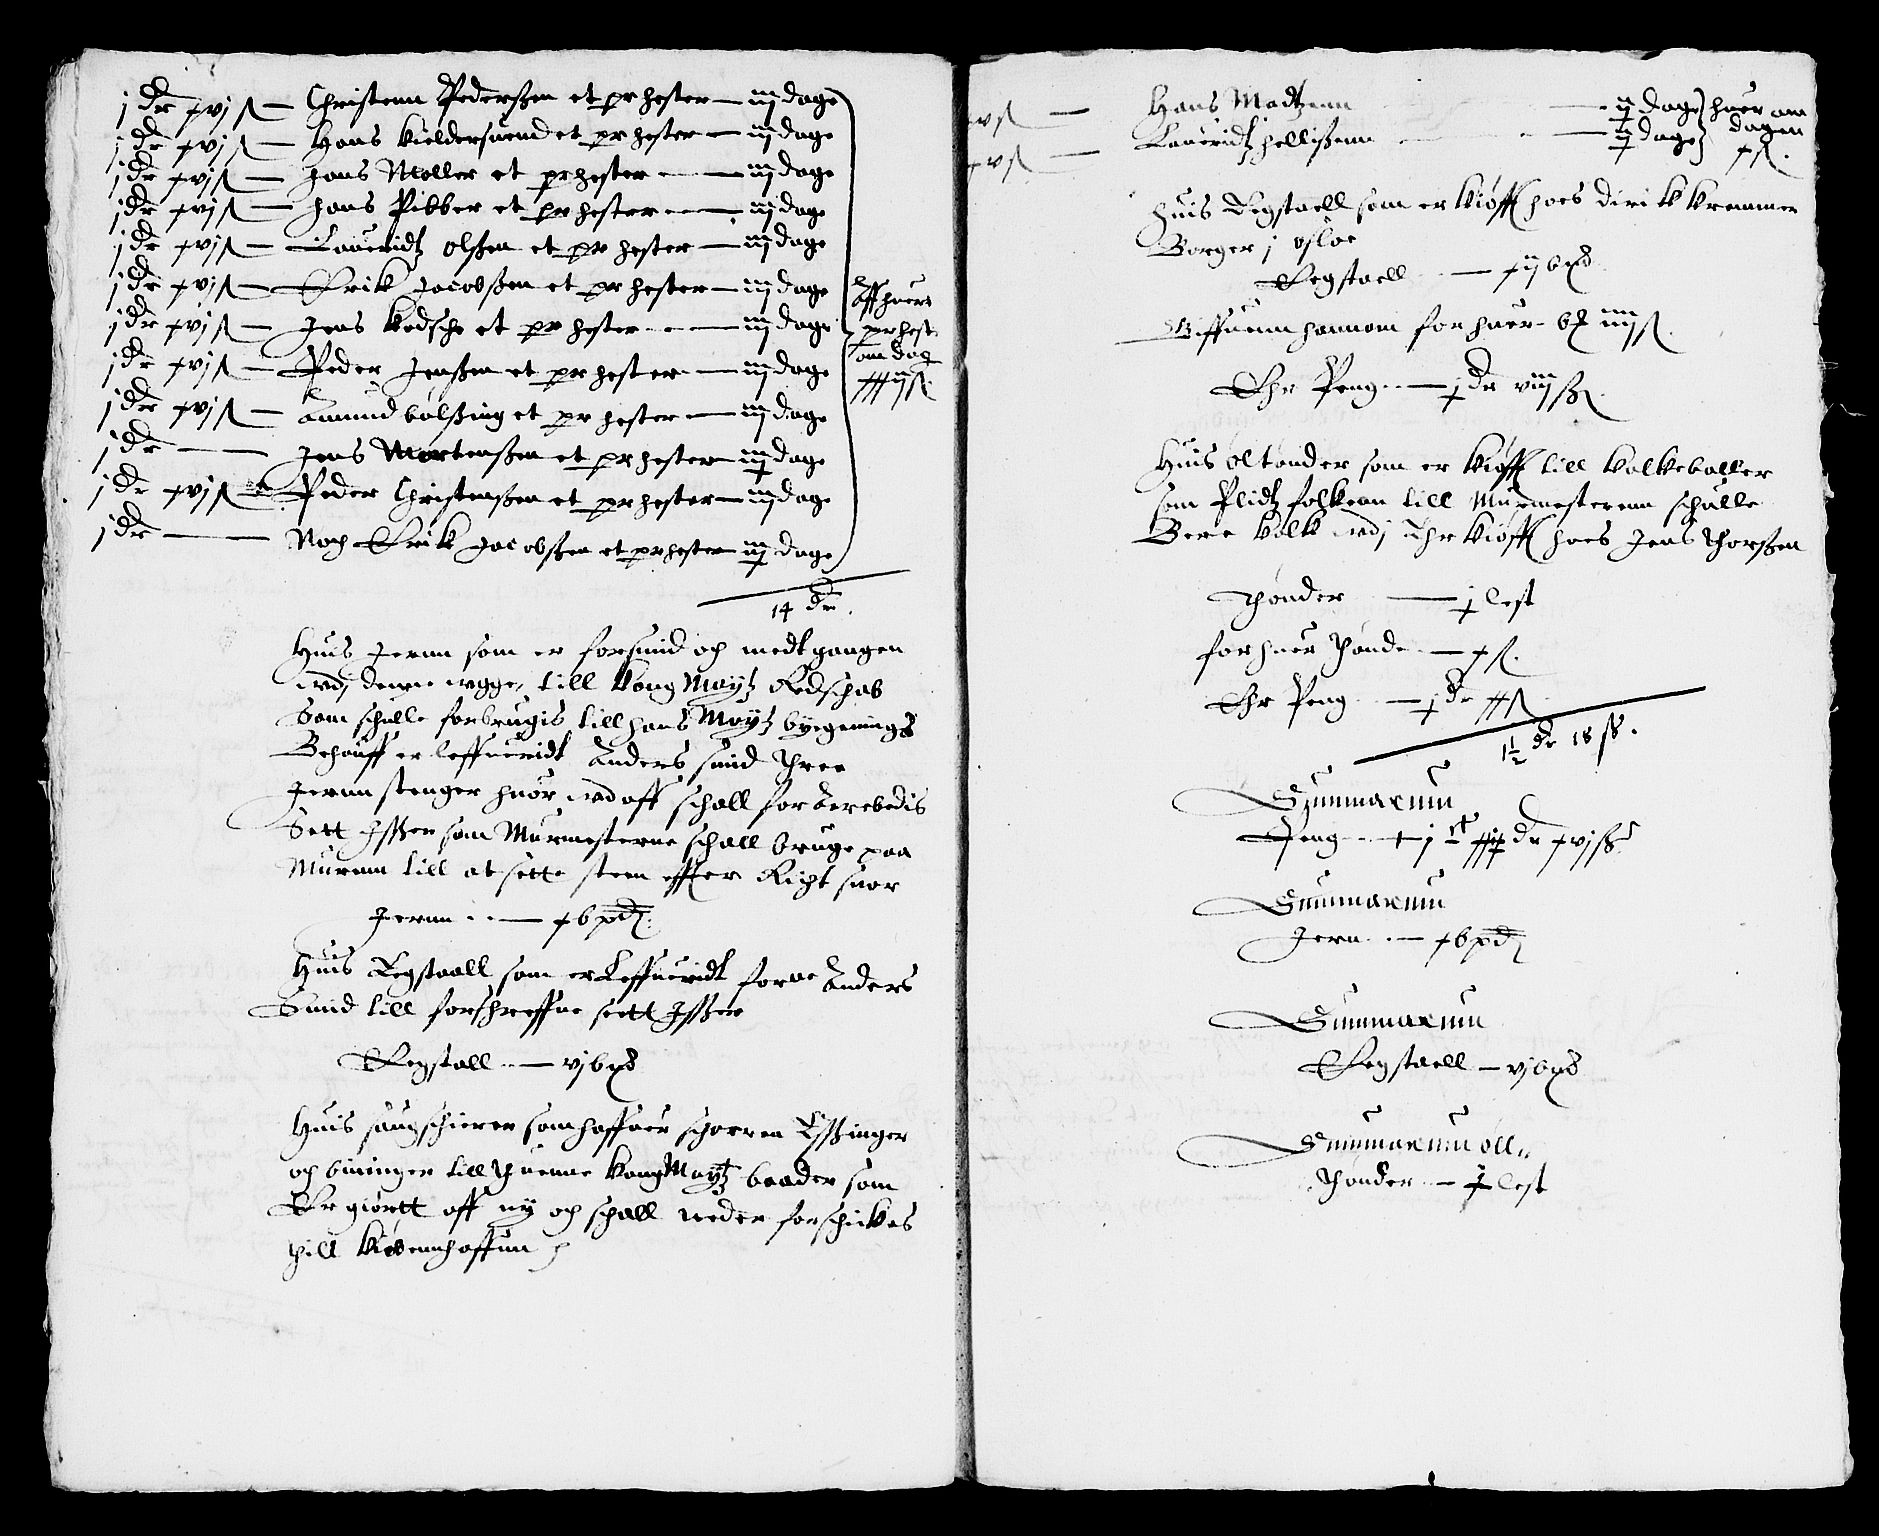 j dr xvj ß — Christenn Pederßen et pr hester — iiij dage
j dr xvj ß — Hans kieldersuend et pr hester — iiij dage
j dr xvj ß — Hans Moller et pr hester — iiij dage
j dr xvj ß — Hans Pibber et pr hester — iiij dage
j dr xvj ß — Lauridtz olßen et pr hester — iiij dage
j dr xvj ß — Erik Jacobßen et pr hester — iiij dage
j dr xvj ß — Jens kodsche et pr hester — iiij dage
j dr xvj ß — Peder Jenßen et pr hester — iiij dage
j dr xvj ß — Amund bolßing et pr hester — iiij dage
j dr — Jens Mortenßen et pr hester — iij dage
j dr xvj ß — Peder Christenßen et pr hester — iiij dage
j dr — Noch Erik Jacobßen et pr hester iij dage
Aff huer
pr hest
om dag
xxij ß.
14 dr.
Huis Jernn som er forsmid och medt gangen
wdj denne wgge, till kong Maytz Redschab
Som schulle forbrugis till hans Maytz bygenings
Behouff er leffueridt Anders smid Three
Jernn stenger huor wdaff schall for Arebedis
Sett Jsßer som Murmesterne schall bruge paa
Muren till at sette steen effter Richt snor
Jernn — x b pd.
Huis Legstaall som er Leffueridt forne Anders
Smid till forschreffne sett Jsßer
Legstall — vj b pd
Huis saugschierer som haffuer schorren Lißinger
och bininger till thuenne kong Maytz baader som
Er giortt aff ny och schall neder forschickes
thill kiøbennhaffuen

vß — Hans Madtzenn — ij dage
vß — Lauridtz hellißenn — ij dage
huer om
dagen
x ß.
Huis Legstaell som er kiøfft hoes Dirik kremmer
Borger j osloe
Legstaell — xij b pd
Giffuenn hannom for huer b pd iiij ß.
Ehr Peng — j dr viij ß.
Huis øltonder som er kiøfft till kalkeballier
som Plidtz folkenn till Murmesterenn schulle
Bere kalk wdj Ehr kiøfft hoes Jens Thorßen
Thønder — j lest
for huer Thønde — x ß.
Ehr Peng — j dr xx ß
1½ dr 18 ß.
Summarum
Peng — j ct xxij dr xvj ß
Summarum
Jern — x b pd
Summarum
Legstaell — vj b pd
Summarum øll
Thønder — j lest